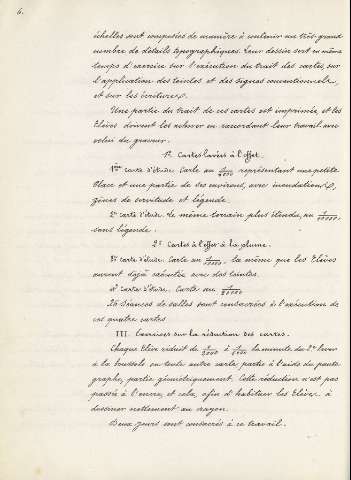 6.
échelles sont composées de manière à contenir un très-grand
nombre de détails topographiques. Leur dessin sert en même
temps d'exercice sur l'exécution du trait des cartes, sur
l'application des teintes et des signes conventionnels,
et sur les écritures.
Une partie du trait de ces cartes est imprimée, et les
Elèves doivent les achever en raccordant leur travail avec
celui du graveur.
1º Cartes lavées à l'effet.
1ère carte d'étude. Carte au représentant une petite
Place et une partie de ses environs, avec inondations,
zônes de servitude et légende.
2e carte d'étude. Le même terrain plus étendu, au
sans légende.
2º Cartes à l'effet à la plume.
3e carte d'étude. Carte au la même que les Elèves
auront déjà exécutée avec des teintes.
4e carte d'étude. Carte au
26 séances de salles sont consacrées à l'exécution de
ces quatre cartes.
III. Exercices sur la réduction des cartes.
Chaque Elève réduit de à la minute du lever
à la boussole ou toute autre carte, partie à l'aide du panto-
graphe, partie géométriquement. Cette réduction n'est pas
passée à l'encre, et cela, afin d'habituer les Elèves à
dessiner nettement au crayon.
Deux jours sont consacrés à ce travail.